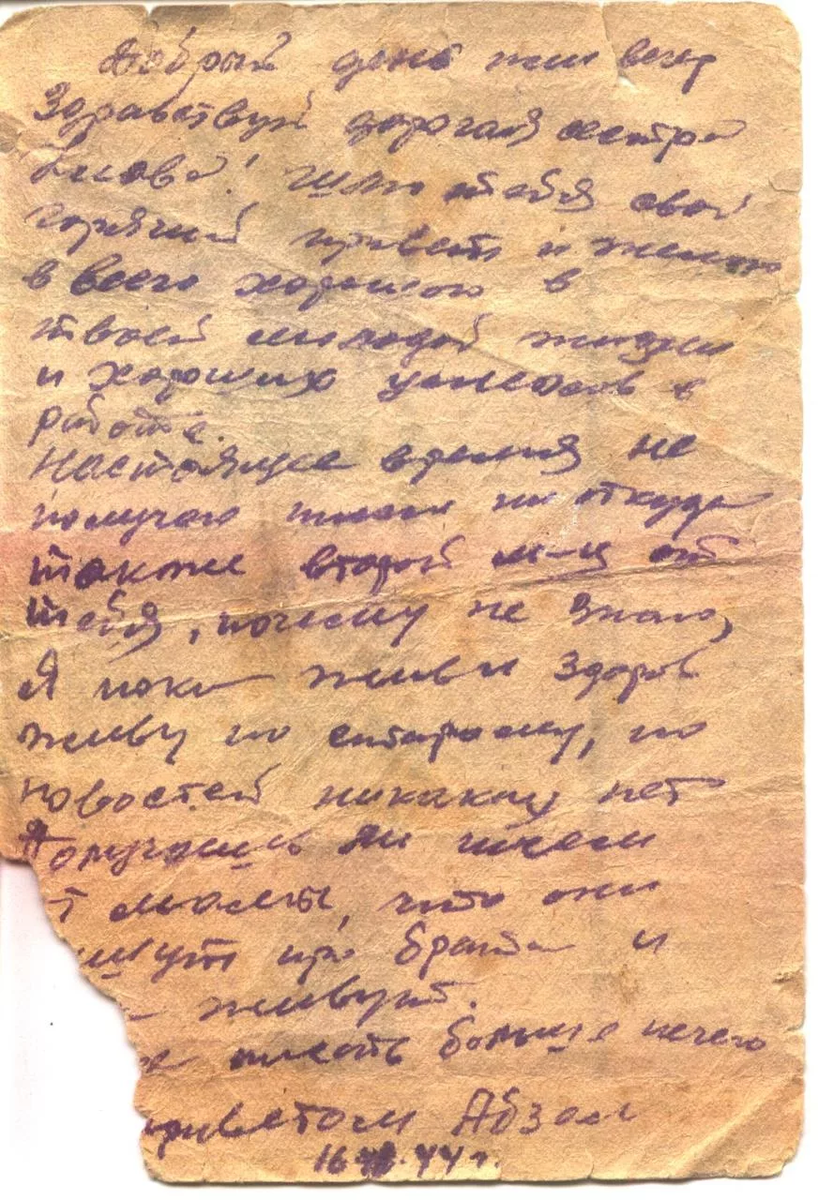 Добрый день или вечер
Здравствуй дорогая сестра
Шлю тебя свой
горячий привет и желаю
в всего хорошого в
твоей молодой жизни
и хороших успехов в
работе.
Настоящее время не
получаю писем ни откуда
также второй м-ц от
тебя, почему не знаю,
Я пока жив и здоров
живу по старому, но
новостей никаких нет
Получаешь ли писем
т мамы, что они
ишут про брата и
живут.
писать больше нечего
приветом Абзал
16 44 г.